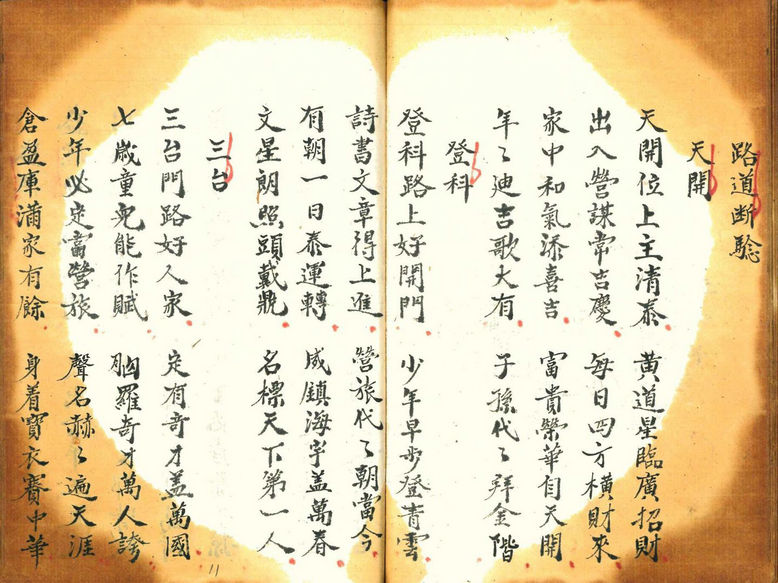 路道断騐
天開
天開位上主清泰 黄道星臨廣招財
出入營謀常吉慶 每日四方横財來
家中和氣添喜吉 富貴榮華自天開
年〻迪吉歌大有 子孫代〻拜金階
登科
登科路上好開門 少年早步登青雲
詩書文章得上進 營旅代〻朝當今
有朝一日泰運轉 威鎮海宇盖萬春
文星朗照頭戴 名標天下第一人
三台
三台門路好人家 定有奇才盖萬國
七歲童兒能作賦 胸羅奇才萬人誇
少年必定當營旅 聲名赫〻遍天涯
倉盈庫滿家有餘 身着寶衣賽中華
11